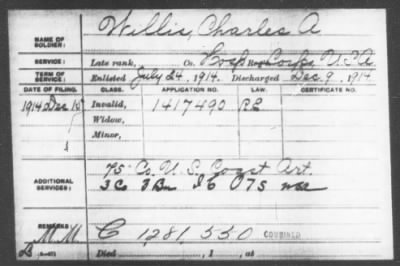 NAME OF SOLDIER: Willis, Charles A
SERVICE: Late rank, Co. Hosp Reg Corps U.S.A
TERM OF SERVICE: Enlisted July 24, 1914. Discharged Dec 9, 1914
DATE OF FILING. CLASS. APPLICATION NO. LAW. CERTIFICATE NO.
1914 Dec 15 Invalid, 1417490
Widow,
Minor,
ADDITIONAL SERVICES: 75 Co. U. S. Coast Art.
REMARKS: C 1281,550 COMBINED
Died , 1 , at